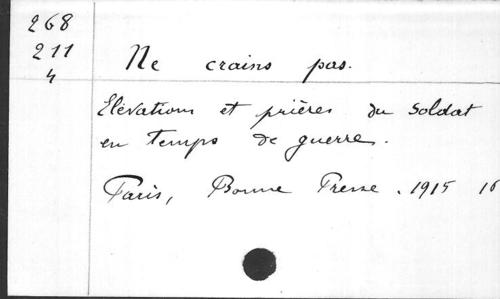 268
211
4
Ne crains pas.
Elévations et prières du soldat
en temps de guerre.
Paris, Bonne Presse. 1915 16